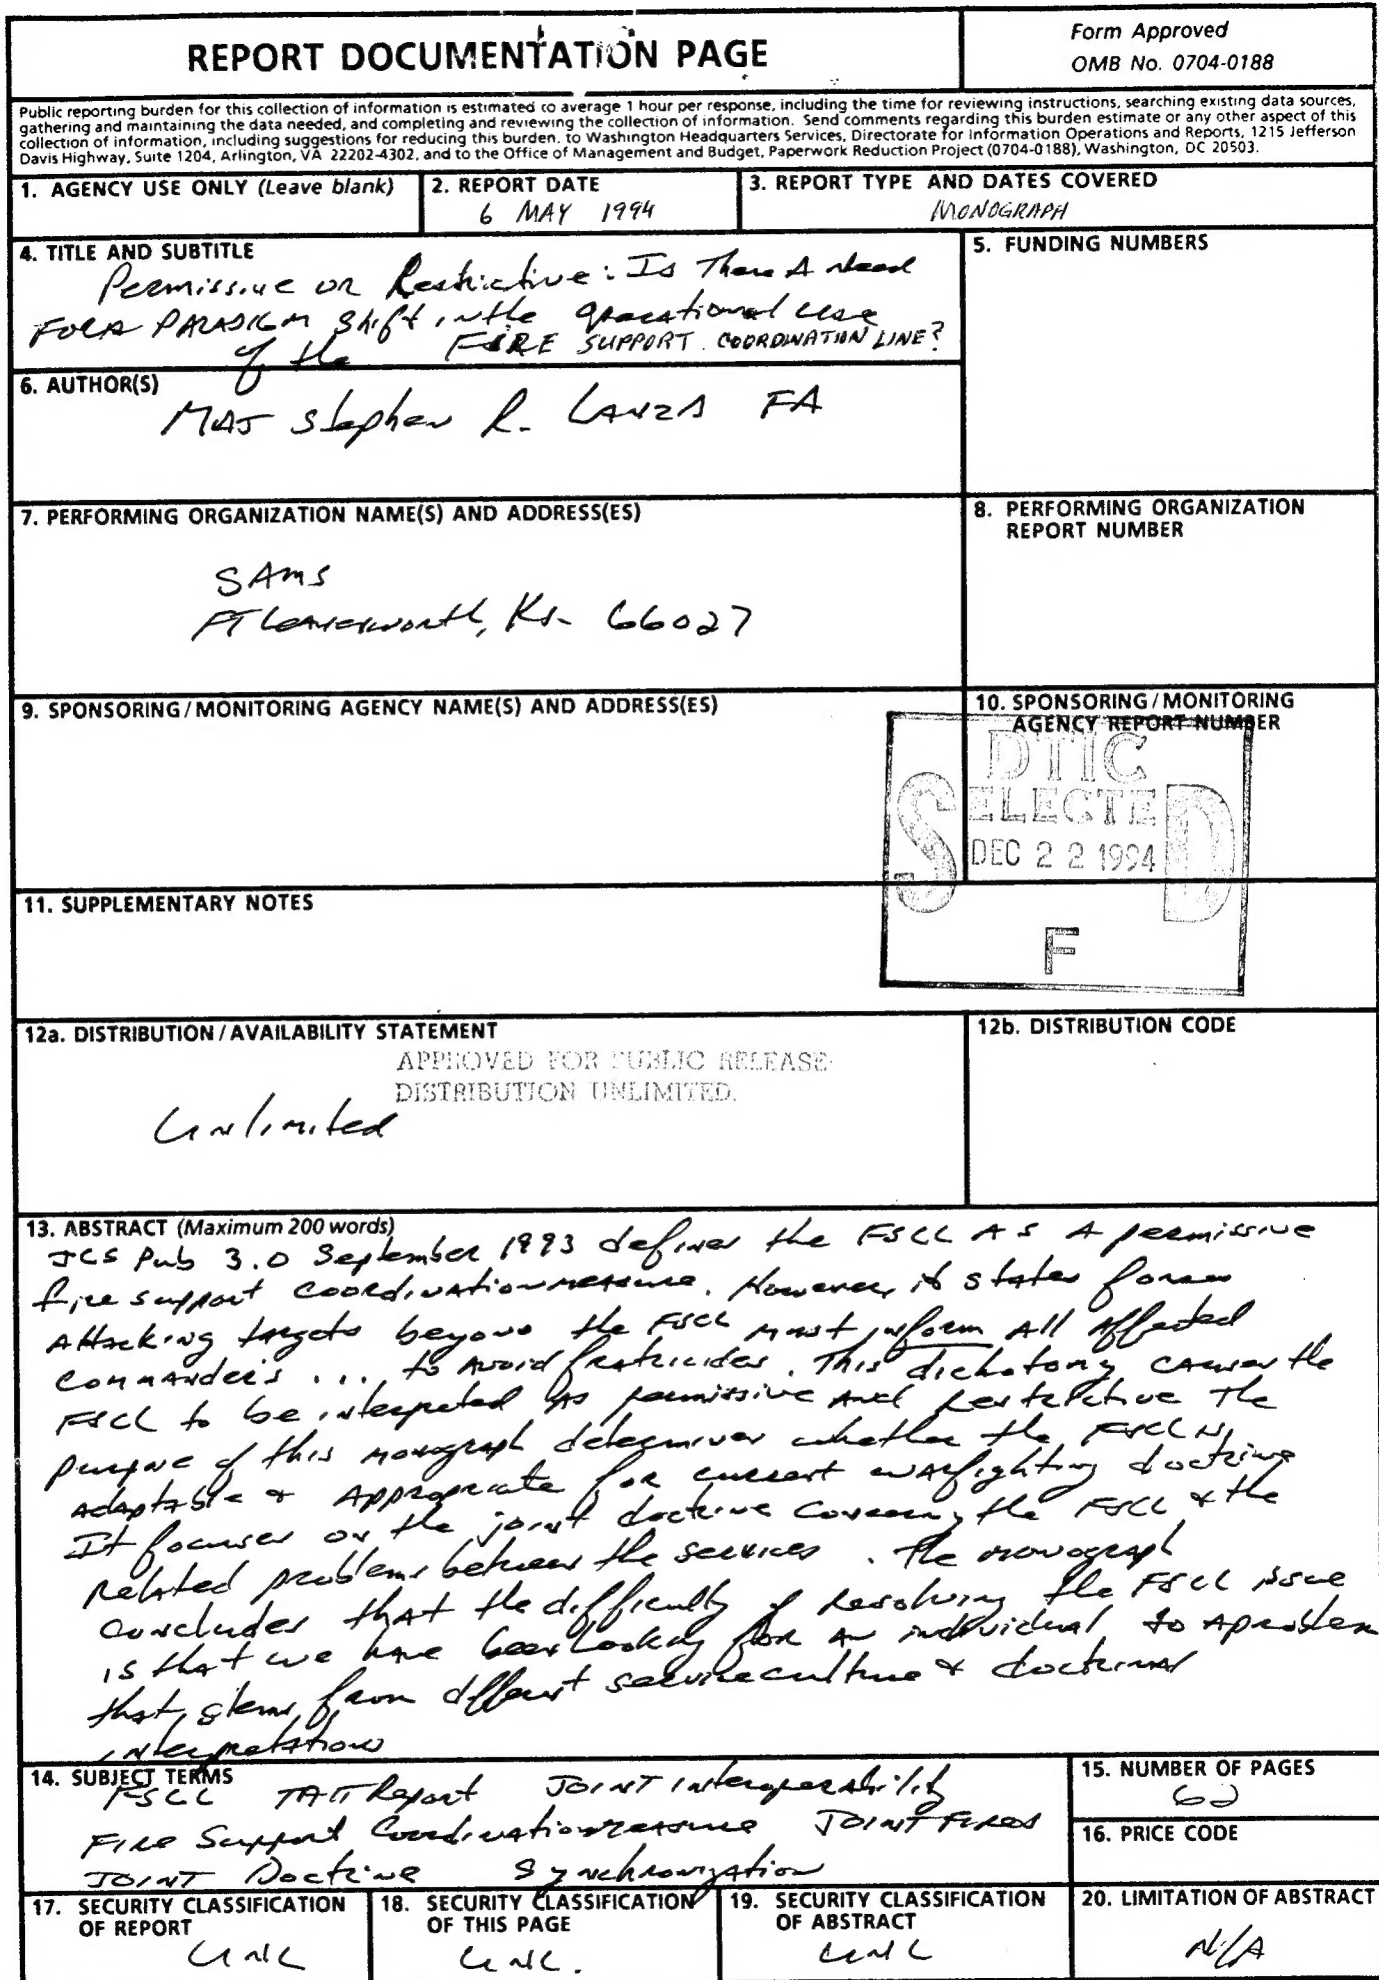 REPORT DOCUMENTATION PAGE
Form Approved
OMB No. 0704-0188
Public reporting burden for this collection of information is estimated to average 1 hour per response, including the time for reviewing instructions, searching existing data sources,
gathering and maintaining the data needed, and completing and reviewing the collection of information. Send comments regarding this burden estimate or any other aspect of this
collection of information, including suggestions for reducing this burden, to Washington Headquarters Services, Directorate for Information Operations and Reports, 1215 Jefferson
Davis Highway, Suite 1204, Arlington, VA 22202-4302, and to the Office of Management and Budget, Paperwork Reduction Project (0704-0188), Washington, DC 20503.
1. AGENCY USE ONLY (Leave blank)
2. REPORT DATE
6 MAY 1994
3. REPORT TYPE AND DATES COVERED
MONOGRAPH
4. TITLE AND SUBTITLE
Permissive or Restrictive: Is There A Need
For A PARADIGM Shift in the operational use
of the FIRE SUPPORT COORDINATION LINE?
5. FUNDING NUMBERS
6. AUTHOR(S)
MAJ Stephen R. LANZA FA
7. PERFORMING ORGANIZATION NAME(S) AND ADDRESS(ES)
SAMS
FT Leavenworth, KS- 66027
8. PERFORMING ORGANIZATION
REPORT NUMBER
9. SPONSORING/MONITORING AGENCY NAME(S) AND ADDRESS(ES)
10. SPONSORING/MONITORING
AGENCY REPORT NUMBER
DTIC
SELECTED
DEC 22 1994
F
11. SUPPLEMENTARY NOTES
12a. DISTRIBUTION/AVAILABILITY STATEMENT
APPROVED FOR PUBLIC RELEASE
DISTRIBUTION UNLIMITED.
Unlimited
12b. DISTRIBUTION CODE
13. ABSTRACT (Maximum 200 words)
JCS Pub 3.0 September 1993 defines the FSCL AS A permissive
fire support coordination measure. However, it states forces
Attacking targets beyond the FSCL must inform All affected
commanders ... to avoid fratricides. This dichotomy causes the
FSCL to be interpreted as permissive and restrictive The
purpose of this monograph determines whether the FSCL is
adaptable & appropriate for current warfighting doctrine
It focuses on the joint doctrine covering the FSCL & the
related problems between the services. The monograph
concludes that the difficulty of resolving the FSCL issue
is that we have been looking for an individual to a problem
that stems from different service culture & doctrinal
interpretations
14. SUBJECT TERMS
FSCL TAIT Report JOINT interoperability
Fire Support Coordination measure JOINT FIRES
JOINT Doctrine Synchronization
15. NUMBER OF PAGES
62
16. PRICE CODE
17. SECURITY CLASSIFICATION
OF REPORT
UNC
18. SECURITY CLASSIFICATION
OF THIS PAGE
UNC.
19. SECURITY CLASSIFICATION
OF ABSTRACT
UNC
20. LIMITATION OF ABSTRACT
N/A